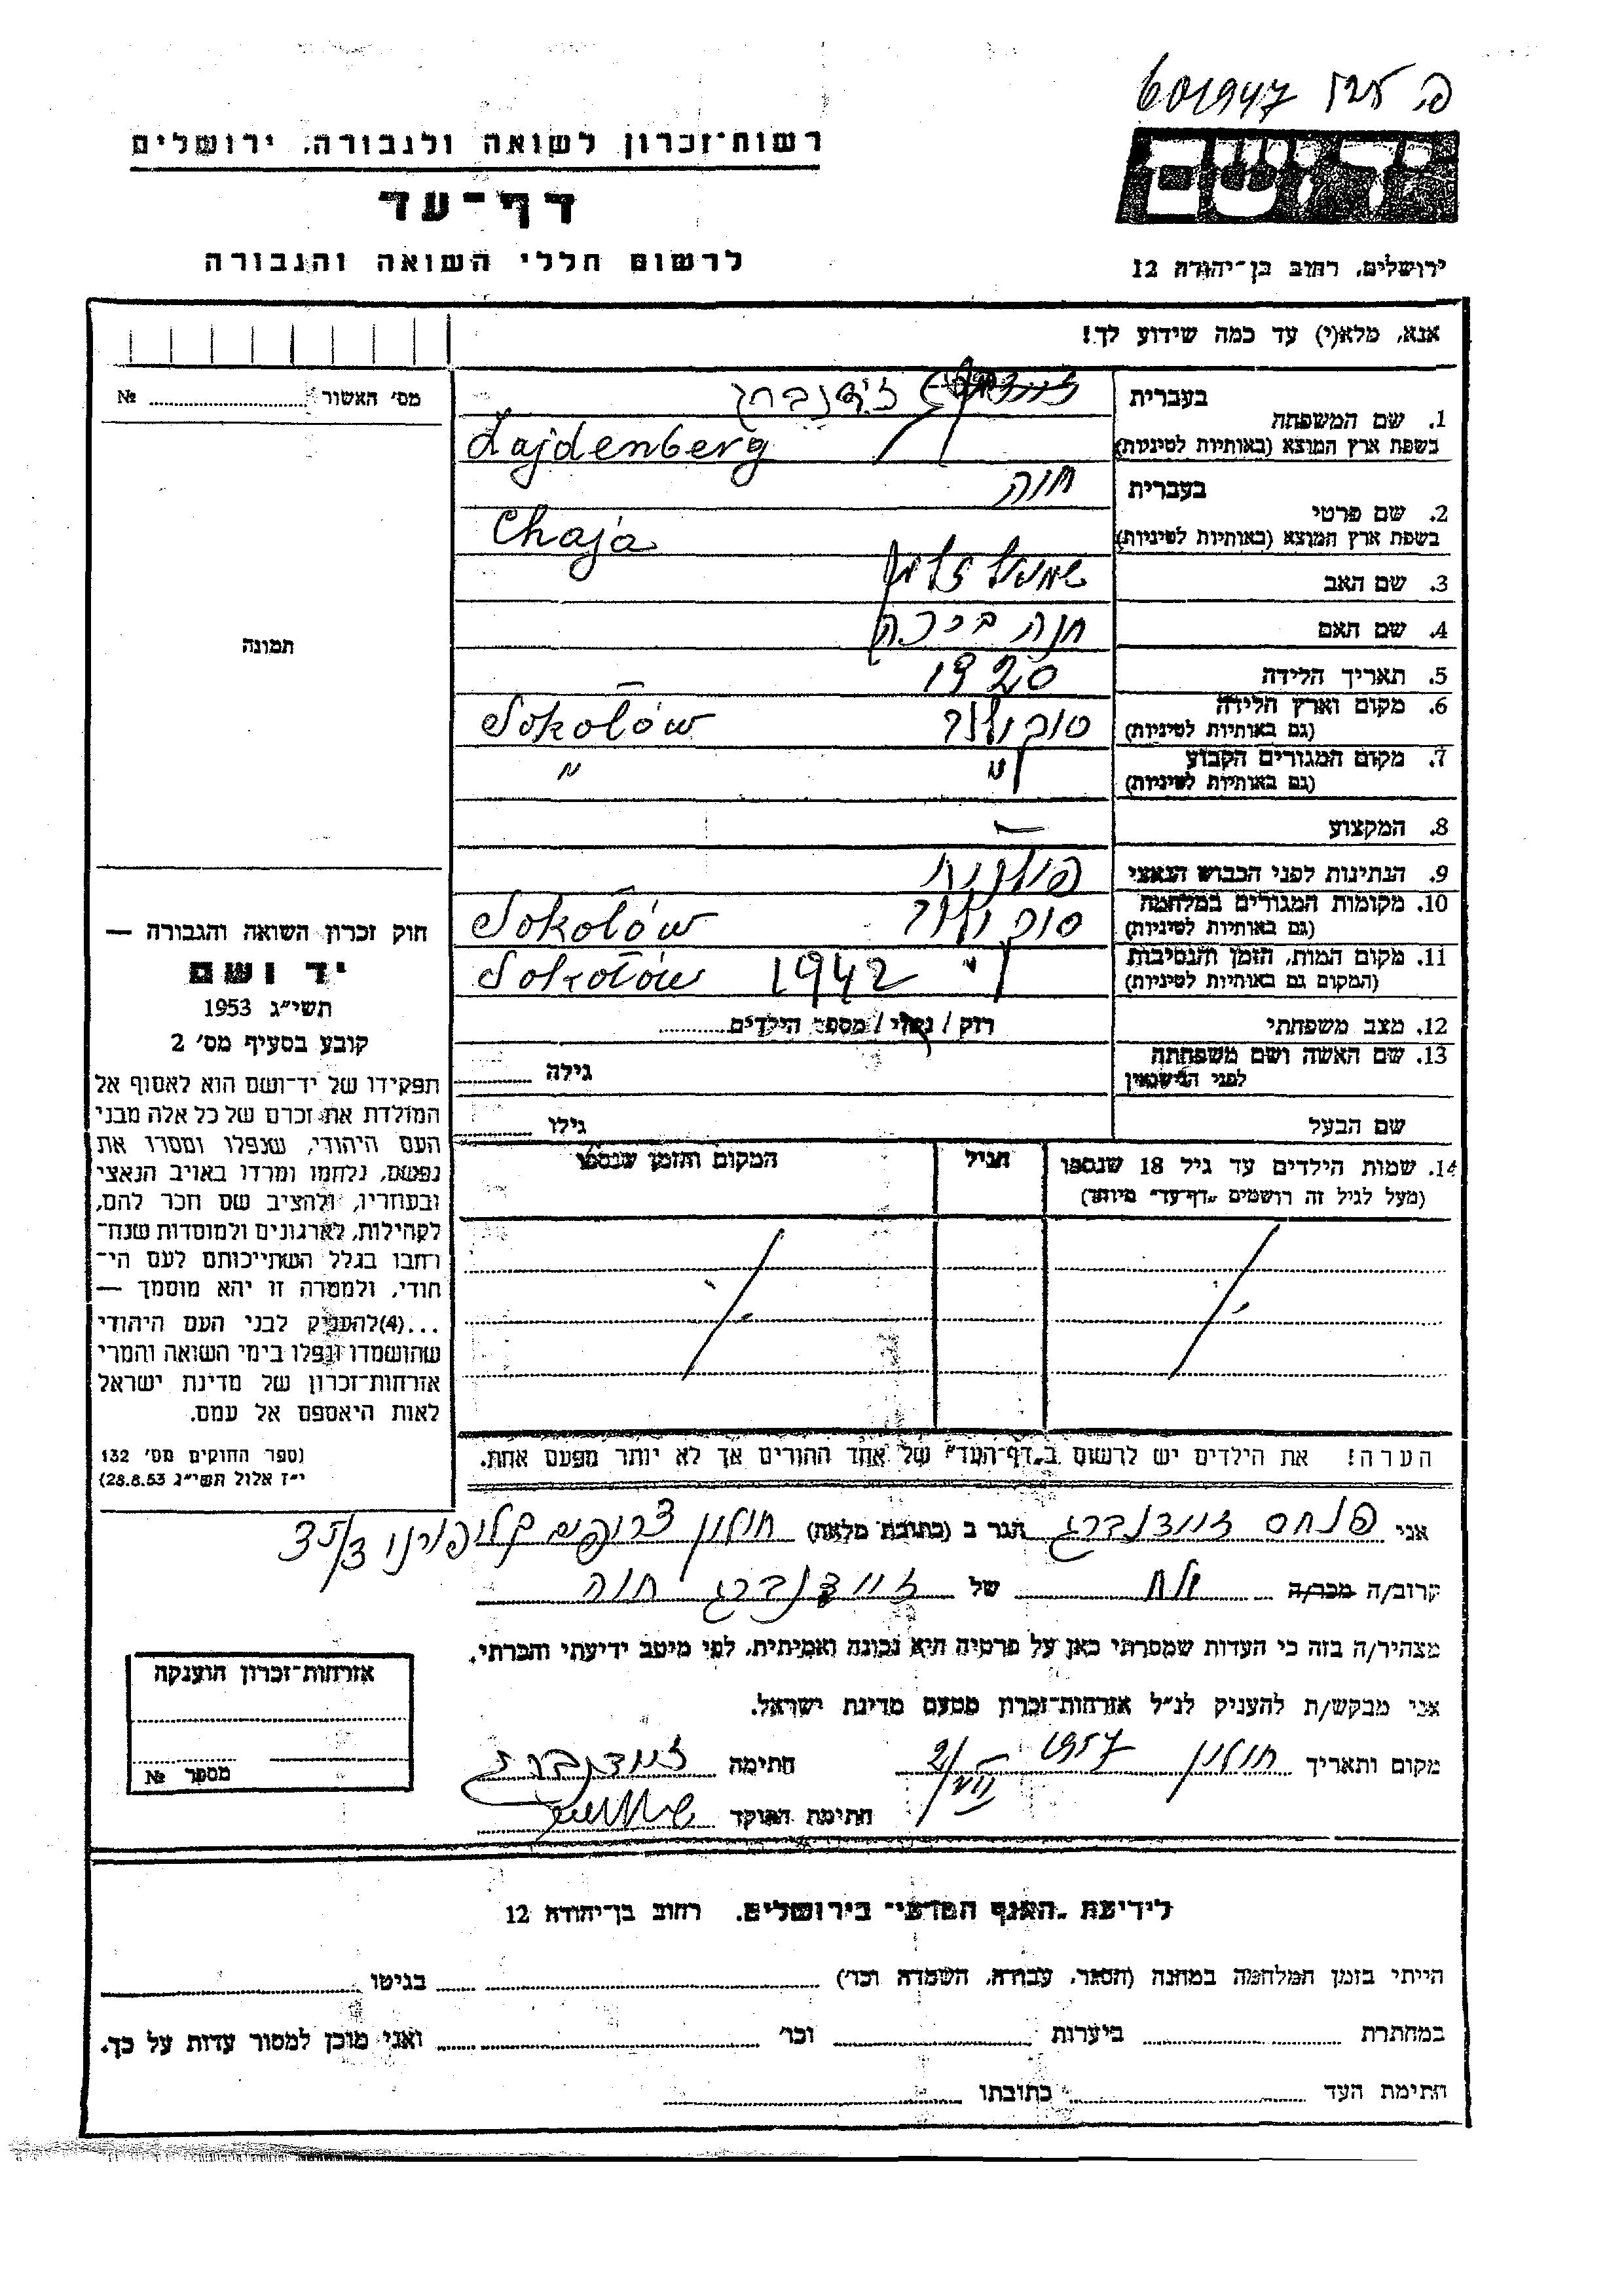 601947
יד ושם
ירושלים, רחוב בן־יהודה 12
רשות־זכרון לשואה ולגבורה, ירושלים
דף־עד
לרשום חללי השואה והגבורה
אנא, מלא(י) עד כמה שידוע לך!
מס׳ האשור № 
1. שם המשפחה בעברית זידנברג
בשפת ארץ המוצא (באותיות לטיניות) Zajdenberg
2. שם פרטי בעברית חיה
בשפת ארץ המוצא (באותיות לטיניות) Chaja
3. שם האב שמואל זלמן
4. שם האם חנה ברכה
5. תאריך הלידה 1920
6. מקום וארץ הלידה (גם באותיות לטיניות) סוקולוב Sokołów
7. מקום המגורים הקבוע (גם באותיות לטיניות) " "
8. המקצוע —
9. הנתינות לפני הכבוש הנאצי פולנית
10. מקומות המגורים במלחמה (גם באותיות לטיניות) סוקולוב Sokołów
11. מקום המות, הזמן והנסיבות (המקום גם באותיות לטיניות) " 1942 Sokołów
12. מצב משפחתי רוק / נשוי / מספר הילדים
13. שם האשה ושם משפחתה לפני הנישואין גילה
שם הבעל גילו
14. שמות הילדים עד גיל 18 שנספו הגיל המקום והזמן שנספו
(מעל לגיל זה רושמים „דף־עד״ מיוחד)
הערה! את הילדים יש לרשום ב„דף־העד״ של אחד ההורים אך לא יותר מפעם אחת.
תמונה
חוק זכרון השואה והגבורה —
יד ושם
תשי״ג 1953
קובע בסעיף מס׳ 2
תפקידו של יד־ושם הוא לאסוף אל
המולדת את זכרם של כל אלה מבני
העם היהודי, שנפלו ומסרו את
נפשם, נלחמו ומרדו באויב הנאצי
ובעוזריו, ולהציב שם וזכר להם,
לקהילות, לארגונים ולמוסדות שנח־
רבו בגלל השתייכותם לעם הי־
הודי, ולמטרה זו יהא מוסמך —
...(4)להעניק לבני העם היהודי
שהושמדו ונפלו בימי השואה והמרי
אזרחות־זכרון של מדינת ישראל
לאות היאספם אל עמם.
(ספר החוקים מס׳ 132
י״ז אלול תשי״ג 28.8.53)
אני פנחס זיידנברג הגר ב (כתובת מלאה) חולון
קרוב/ה מכר/ה אח של זיידנברג חיה
מצהיר/ה בזה כי העדות שמסרתי כאן על פרטיה היא נכונה ואמיתית, לפי מיטב ידיעתי והכרתי.
אני מבקש/ת להעניק לנ״ל אזרחות־זכרון מטעם מדינת ישראל.
מקום ותאריך חולון 2/VII 1957 חתימה זיידנברג
חתימת הפוקד
אזרחות־זכרון הוענקה
מספר №
לידיעת „האגף המדעי״ בירושלים, רחוב בן־יהודה 12
הייתי בזמן המלחמה במחנה (הסגר, עבודה, השמדה וכו׳) בגיטו
במחתרת ביערות וכו׳ ואני מוכן למסור עדות על כך.
חתימת העד כתובתו